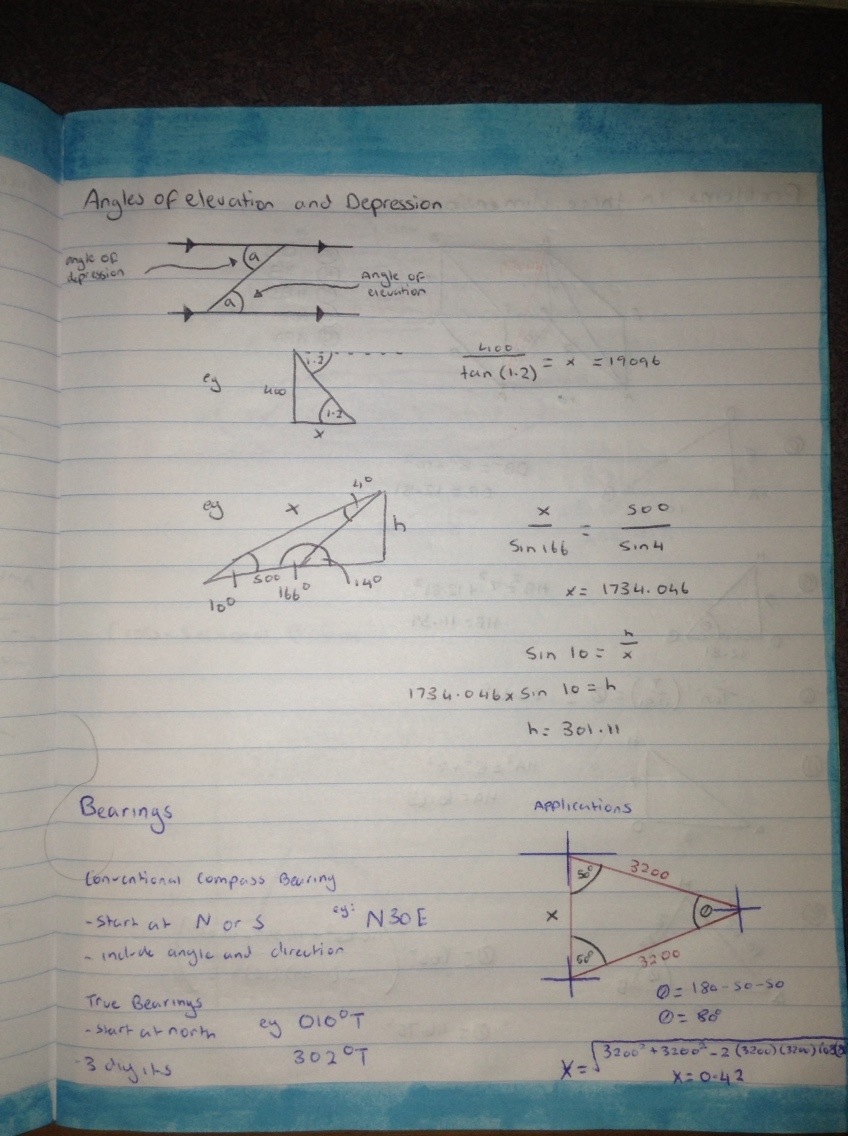 Angles of elevation and Depression
angle of
depression
a
a
Angle of
elevation
eg
1.2
400
1.2
x
400
tan (1.2) = x = 19096
eg
x
4°
h
500
10°
166°
14°
x = 500
Sin 166 Sin 4
x = 1734.046
Sin 10 = h
x
1734.046 x Sin 10 = h
h = 301.11
Bearings
Conventional Compass Bearing
- Start at N or S eg: N30E
- include angle and direction
True Bearings
- start at north eg 010°T
- 3 digits 302°T
Applications
50°
3200
x
θ
50°
3200
θ = 180 - 50 - 50
θ = 80°
x = √3200² + 3200² - 2 (3200)(3200)
x = 0.42